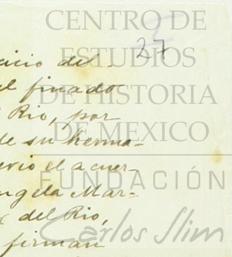 CENTRO DE
ESTUDIOS
27
DE HISTORIA
DE MEXICO
FUNDACIÓN
Carlos Slim
icio del
el finado
l Rio, por
de su herma-
vio el acuer-
ngela Mar-
z del Rio,
firman